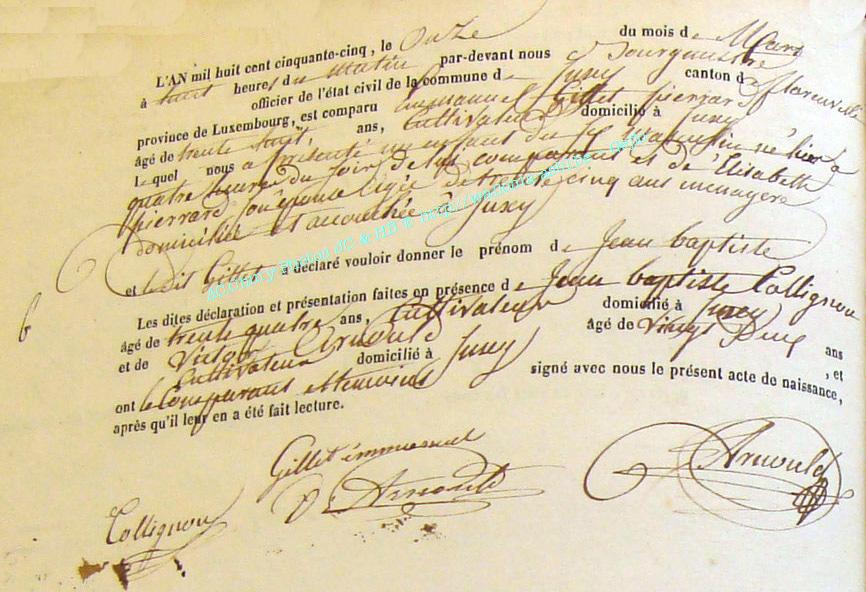 L'AN mil huit cent cinquante-cinq, le Onze du mois de Mars
à huit heures du Matin par-devant nous Bourgmestre
officier de l'état civil de la commune de Juxy canton de Florenville
province de Luxembourg, est comparu Emmanuel Gillet pierrard
âgé de trente huit, ans, Cultivateur domicilié à Juxy
Le quel nous a présenté un enfant du sexe Masculin né hier à
quatre heures du soir de lui comparant et de Elisabeth
pierrard son épouse âgée de trente cinq ans menagere
domiciliée et accouchée à Juxy
et ledit Gillet à déclaré vouloir donner le prénom de Jean baptiste
Les dites déclaration et présentation faites en présence de Jean baptiste Collignon
âgé de trente quatre ans, Cultivateur domicilié à Juxy
et de Victor Arnould âgé de Vingt Deux ans
Cultivateur domicilié à Juxy , et
ont le Comparant et temoins signé avec nous le présent acte de naissance,
après qu'il leur en a été fait lecture.
Gillet immanuel
V. Arnould
Arnould
Collignon
6